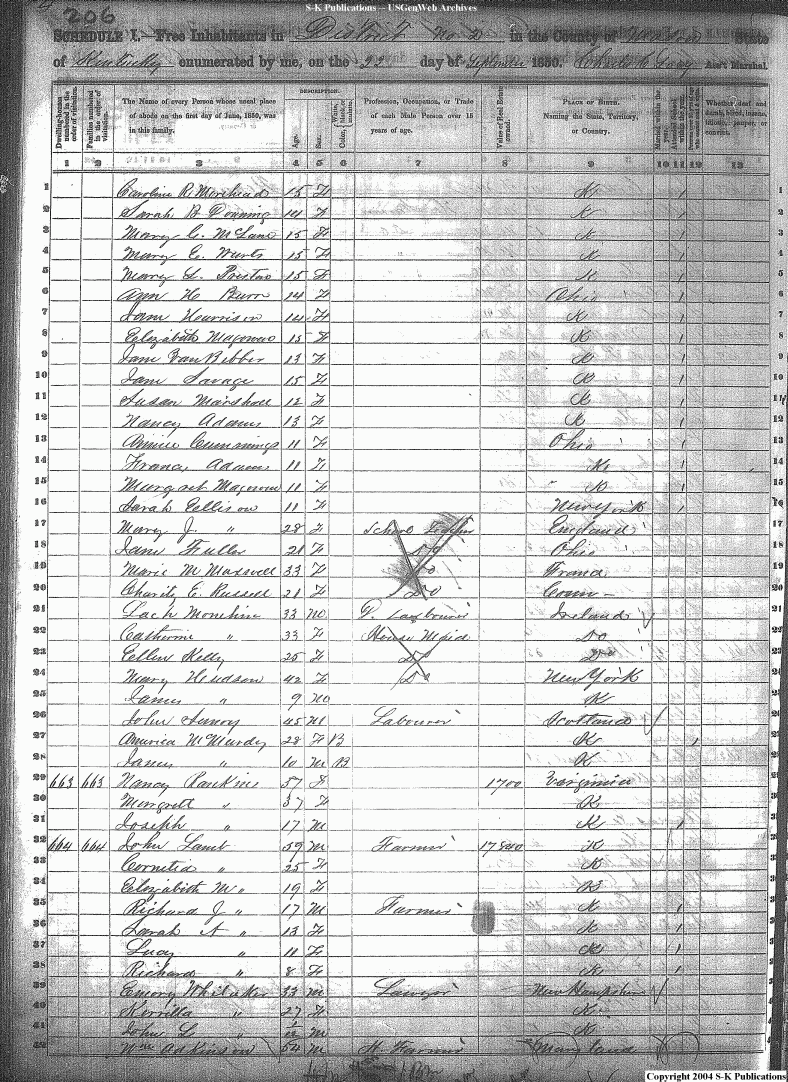 S-K Publications -- USGenWeb Archives
206
SCHEDULE I.—Free Inhabitants in District No 2 in the County of State
of Kentucky enumerated by me, on the 22 day of September 1850. Ass't Marshal.
Dwelling-houses numbered in the order of visitation.
Families numbered in the order of visitation.
The Name of every Person whose usual place of abode on the first day of June, 1850, was in this family.
DESCRIPTION.
Age.
Sex.
Color, White, black, or mulatto.
Profession, Occupation, or Trade of each Male Person over 15 years of age.
Value of Real Estate owned.
PLACE OF BIRTH. Naming the State, Territory, or Country.
Married within the year.
Attended School within the year.
Whether deaf and dumb, blind, insane, idiotic, pauper, or convict.
1 2 3 4 5 6 7 8 9 10 11 12 13
1 Caroline R. Morehead 15 F K 1
2 Sarah B Downing 14 F K 2
3 Mary C. McLane 15 F K 3
4 Mary E. Wurts 15 F K 4
5 Mary L. 15 F K 5
6 Ann H Burr 14 F Ohio 6
7 Jane Harrison 14 F K 7
8 Elizabeth 15 F K 8
9 Jane Van Bibber 13 F K 9
10 Jane Savage 15 F K 10
11 Susan Marshall 12 F K 11
12 Nancy Adams 13 F K 12
13 Cummings 11 F Ohio 13
14 Francis Adams 11 F K 14
15 Margret 11 F K 15
16 Sarah Ellison 11 F New York 16
17 Mary J. " 28 F School Teacher England 17
18 Jane Fuller 21 F Do Ohio 18
19 Marie M Maxwell 33 F Do France 19
20 Charity E. Russell 21 F Do Conn 20
21 Zach 33 M Labourer Ireland 21
22 Catherine " 33 F House Maid Do 22
23 Ellen Kelly 25 F Do Do 23
24 Mary Hudson 42 F Do New York 24
25 James " 9 M K 25
26 John 45 M Labourer Scotland 26
27 America McMurdy 28 F B K 27
28 James " 10 M B K 28
29 663 663 Nancy Rankins 57 F 1700 Virginia 29
30 Margrett " 37 F K 30
31 Joseph " 17 M K 31
32 664 664 John Lamb 59 M Farmer K 32
33 " 25 F K 33
34 Elizabeth M " 19 F K 34
35 Richard J " 17 M Farmer K 35
36 Sarah A " 13 F K 36
37 Lucy " 11 F K 37
38 Richard " 8 F K 38
39 Emory Whitaker 33 M Lawyer New Hampshire 39
40 " 27 F K 40
41 John L " M K 41
42 Wm Adkinson 54 M Farmer Maryland 42
Copyright 2004 S-K Publications